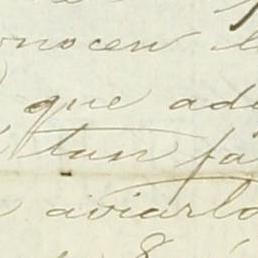 onocen l
que ade
tan fa
aviarlo